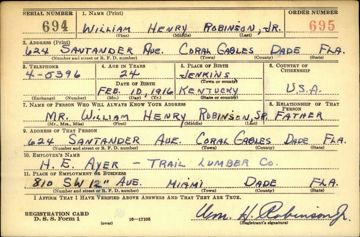 SERIAL NUMBER 1. NAME (Print) ORDER NUMBER
694 WILLIAM HENRY ROBINSON, JR. 695
(First) (Middle) (Last)
2. ADDRESS (Print)
624 SANTANDER AVE. CORAL GABLES DADE FLA.
(Number and street or R. F. D. number) (Town) (County) (State)
3. TELEPHONE 4. AGE IN YEARS 5. PLACE OF BIRTH 6. COUNTRY OF CITIZENSHIP
4-0396 24 JENKINS
(Town or county)
DATE OF BIRTH
FEB. 10, 1916 KENTUCKY U.S.A.
(Exchange) (Number) (Mo.) (Day) (Yr.) (State or country)
7. NAME OF PERSON WHO WILL ALWAYS KNOW YOUR ADDRESS 8. RELATIONSHIP OF THAT PERSON
MR. WILLIAM HENRY ROBINSON, SR. FATHER
(Mr., Mrs., Miss) (First) (Middle) (Last)
9. ADDRESS OF THAT PERSON
624 SANTANDER AVE. CORAL GABLES DADE FLA.
(Number and street or R. F. D. number) (Town) (County) (State)
10. EMPLOYER'S NAME
H. E. AYER - TRAIL LUMBER CO.
11. PLACE OF EMPLOYMENT OR BUSINESS
810 SW 12" AVE. MIAMI DADE FLA.
(Number and street or R. F. D. number) (Town) (County) (State)
I AFFIRM THAT I HAVE VERIFIED ABOVE ANSWERS AND THAT THEY ARE TRUE.
REGISTRATION CARD
D. S. S. Form 1 16-17105 Wm. H. Robinson Jr.
(Registrant's signature)